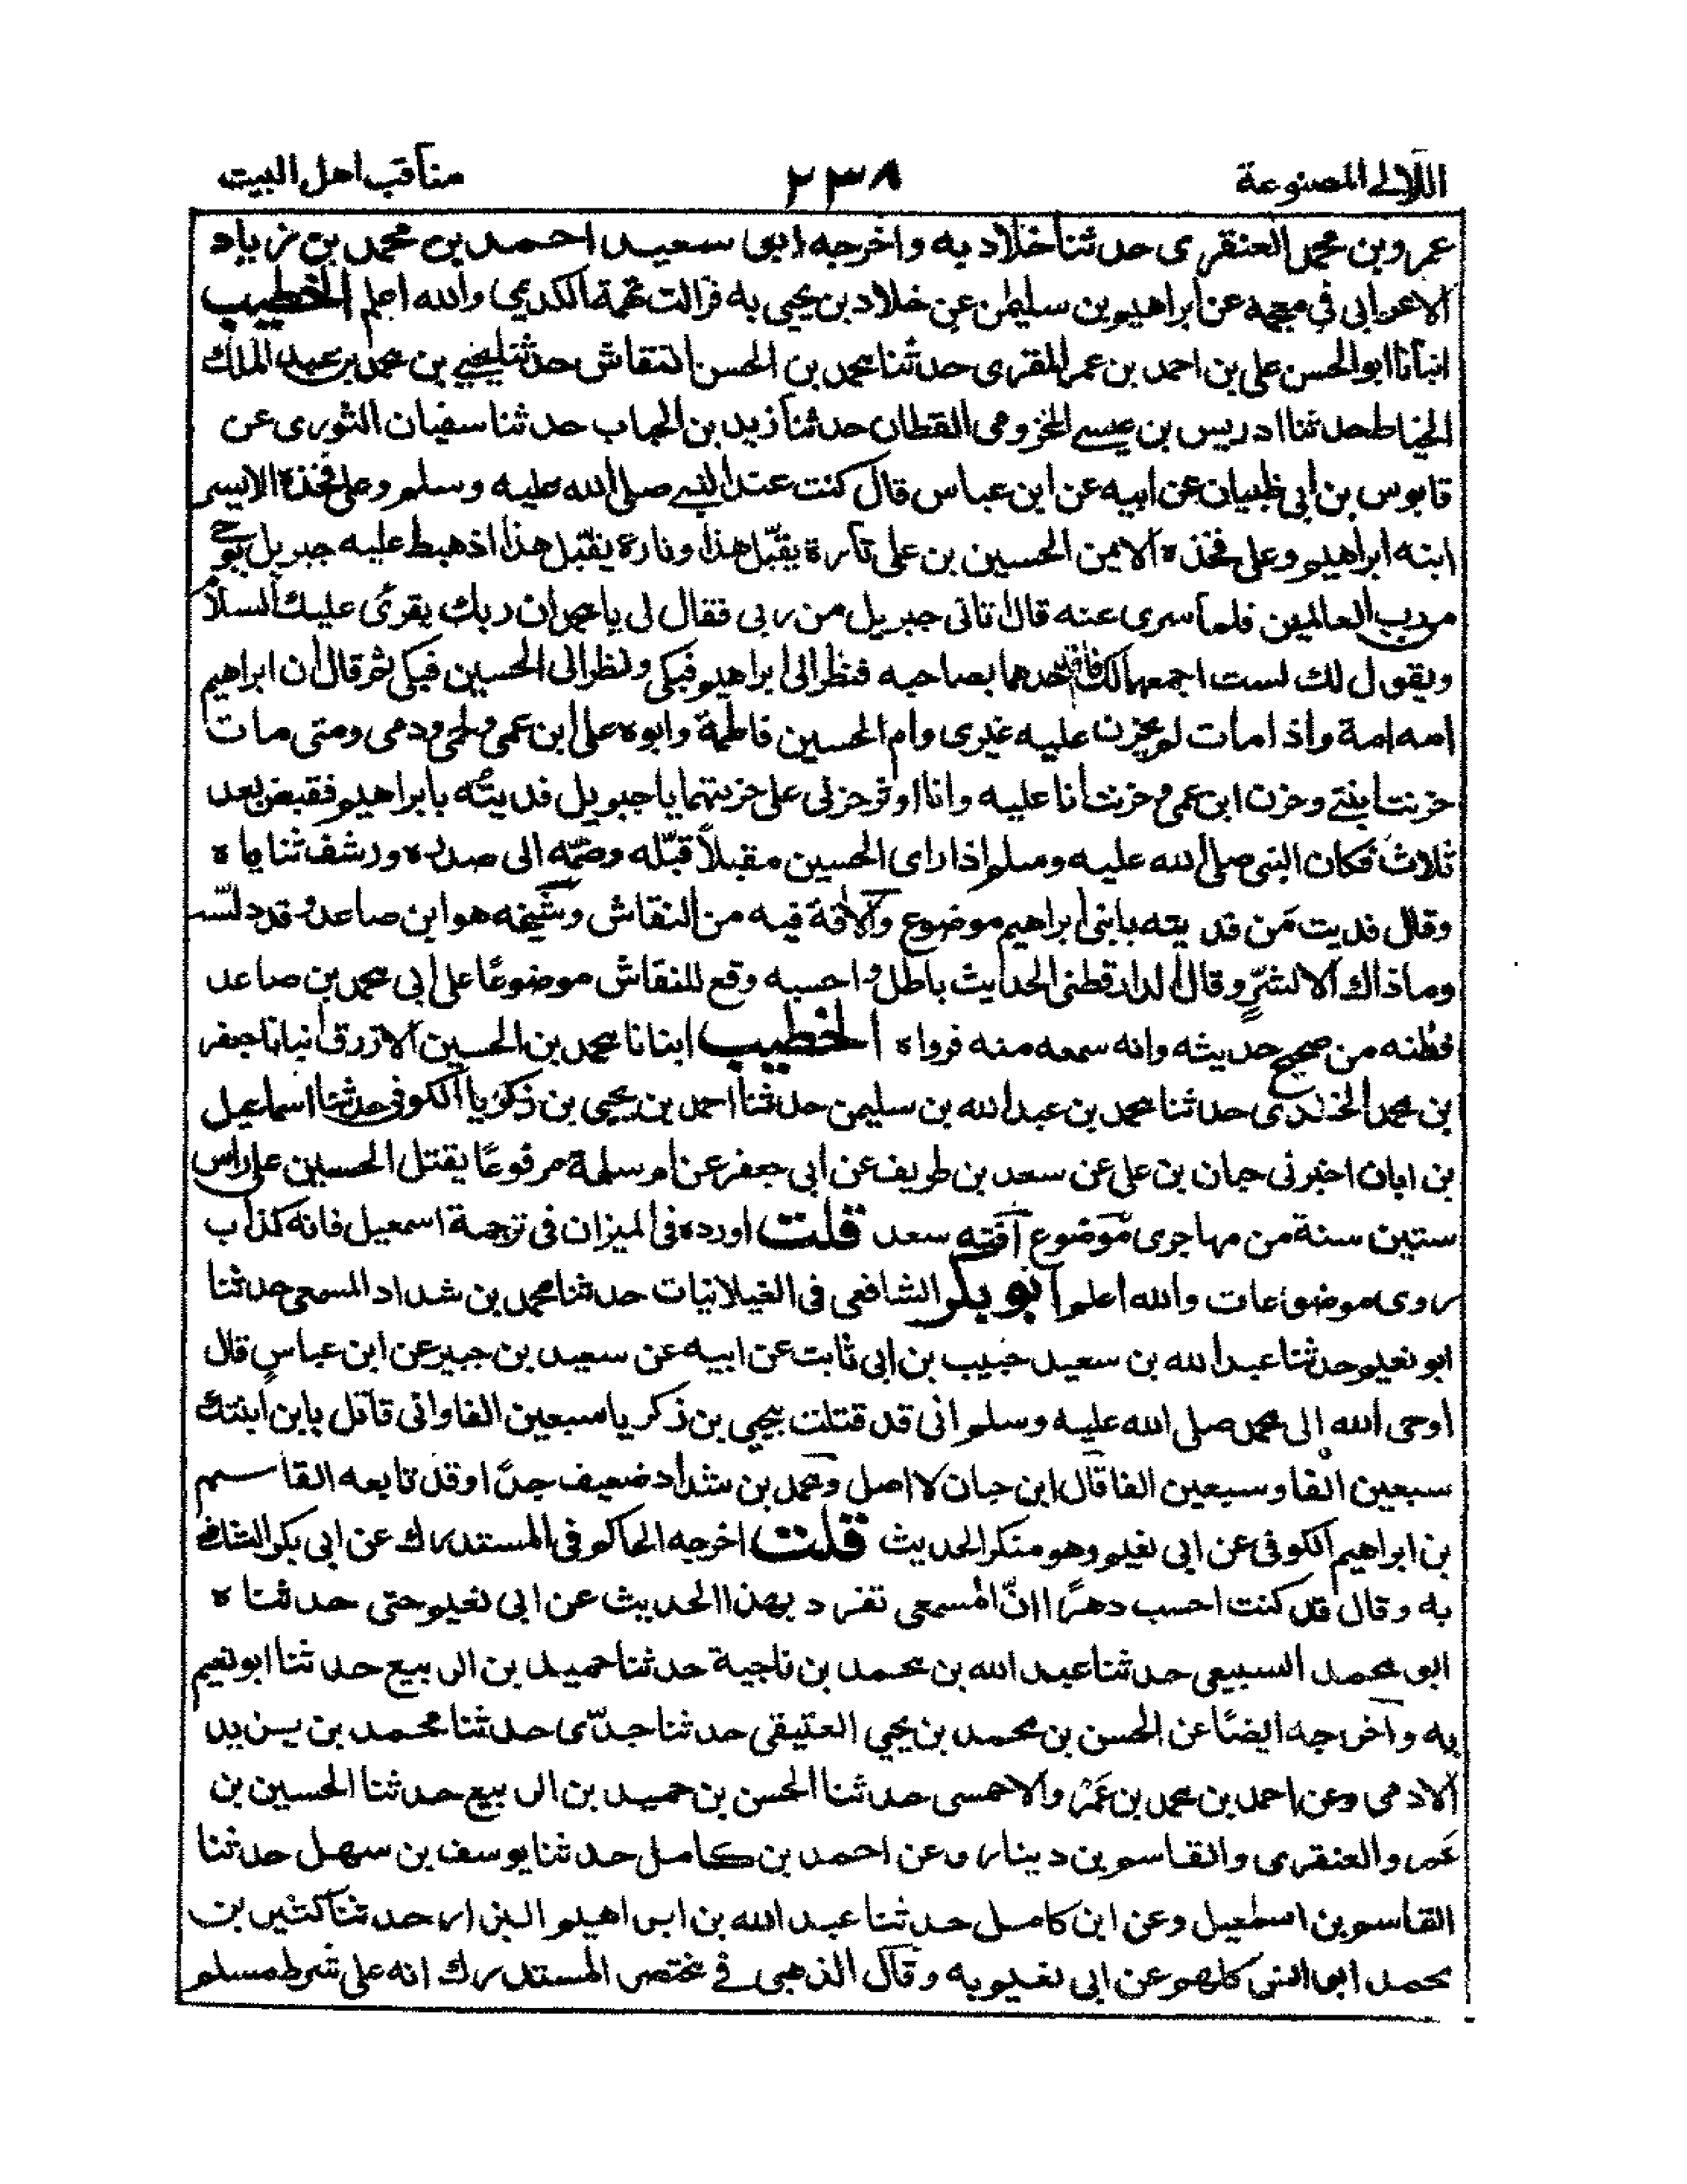 اللآلى المصنوعة ٢٣٨ مناقب اهل البيت
عمرو بن محمد العنقرى حدثنا خلاد به واخرجه ابو سعيد احمد بن محمد بن زياد
الاعرابى فى معجمه عن ابراهيم بن سليمن عن خلاد بن يحيى به فزالت تهمة الكديمى والله اعلم الخطيب
انبأنا ابو الحسن على بن احمد بن عمر المقرى حدثنا محمد بن الحسن النقاش حدثنا يحيى بن محمد بن عبد الملك
الخياط حدثنا ادريس بن عيسى المخزومى القطان حدثنا زيد بن الحباب حدثنا سفيان الثورى عن
قابوس بن ابى ظبيان عن ابيه عن ابن عباس قال كنت عند النبى صلى الله عليه وسلم وعلى فخذه الايسر
ابنه ابراهيم وعلى فخذه الايمن الحسين بن على تارة يقبّل هذا وتارة يقبّل هذا اذ هبط عليه جبريل بوحى
من رب العالمين فلما سرى عنه قال اتانى جبريل من ربى فقال لى يا محمد ان ربك يقرئ عليك السلام
ويقول لك لست اجمعهما لك فافد احدهما بصاحبه فنظر الى ابراهيم فبكى ونظر الى الحسين فبكى ثم قال ان ابراهيم
امه امة واذا مات لم يحزن عليه غيرى وام الحسين فاطمة وابوه على ابن عمى ولحمى ودمى ومتى مات
حزنت ابنتى وحزن ابن عمى وحزنت انا عليه وانا اوثر حزنى على حزنهما يا جبريل فديته بابراهيم فقبض بعد
ثلاث فكان النبى صلى الله عليه وسلم اذا راى الحسين مقبلاً قبّله وضمّه الى صدره ورشف ثناياه
وقال فديت مَن فديته بابنى ابراهيم موضوع والآفة فيه من النقاش وشيخه هو ابن صاعد وقد دلّسه
وما ذاك الا لشرٍّ وقال الدارقطنى الحديث باطل واحسبه وقع للنقاش موضوعًا على ابى محمد بن صاعد
فظنه من صحيح حديثه وانه سمعه منه فرواه الخطيب انبانا محمد بن الحسين الازرق انبانا جعفر
بن محمد الخلدى حدثنا محمد بن عبد الله بن سليمن حدثنا احمد بن يحيى بن ذكريا الكوفى حدثنا اسماعيل
بن ابان اخبرنى حبان بن على عن سعد بن طريف عن ابى جعفر عن ام سلمة مرفوعًا يقتل الحسين على راس
ستين سنة من مهاجرى موضوع آفته سعد قلت اورده فى الميزان فى ترجمة اسمعيل فانه كذاب
روى موضوعات والله اعلم ابو بكر الشافعى فى الغيلانيات حدثنا محمد بن شداد المسمعى حدثنا
ابو نعيم حدثنا عبد الله بن سعيد حبيب بن ابى ثابت عن ابيه عن سعيد بن جبير عن ابن عباس قال
اوحى الله الى محمد صلى الله عليه وسلم انى قد قتلت بيحيى بن ذكريا سبعين الفا وانى قاتل بابن ابنتك
سبعين الفا وسبعين الفا قال ابن حبان لا اصل له ومحمد بن شداد ضعيف جدًّا وقد تابعه القاسم
بن ابراهيم الكوفى عن ابى نعيم وهو منكر الحديث قلت اخرجه الحاكم فى المستدرك عن ابى بكر الشافعى
به وقال قد كنت احسب دهرًا انّ المسمعى تفرد بهذا الحديث عن ابى نعيم حتى حدثناه
ابو محمد السبيعى حدثنا عبد الله بن محمد بن ناجية حدثنا حميد بن الربيع حدثنا ابو نعيم
به وآخرجه ايضًا عن الحسن بن محمد بن يحيى العتيقى حدثنا جدّى حدثنا محمد بن يزيد
الادمى وعن احمد بن محمد بن عَمْرو الاحمسى حدثنا الحسن بن حميد بن الربيع حدثنا الحسين بن
عَمرو العنقرى والقاسم بن دينار وعن احمد بن كامل حدثنا يوسف بن سهل حدثنا
القاسم بن اسمعيل وعن ابن كامل حدثنا عبد الله بن ابراهيم البزار حدثنا كثير بن
محمد ابو انس كلهم عن ابى نعيم به وقال الذهبى فى مختصر المستدرك انه على شرط مسلم